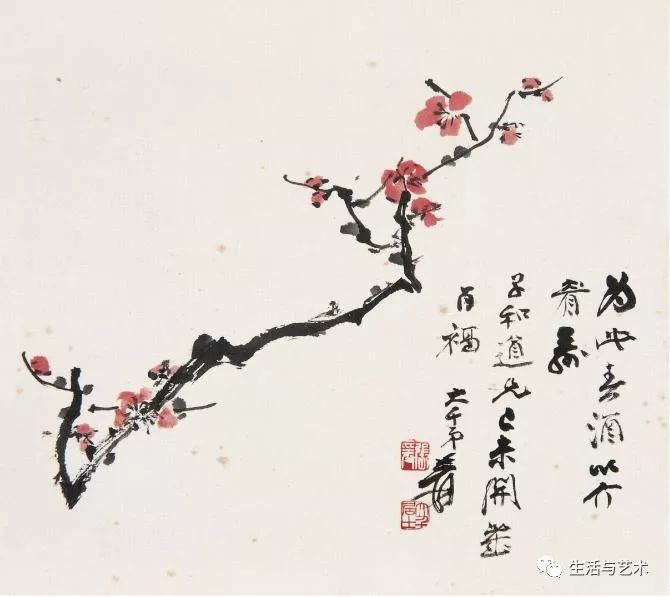 為此春酒以介
眉壽
子和道兄己未開歲
百福
大千弟爰
張爰
大千居士
生活与艺术